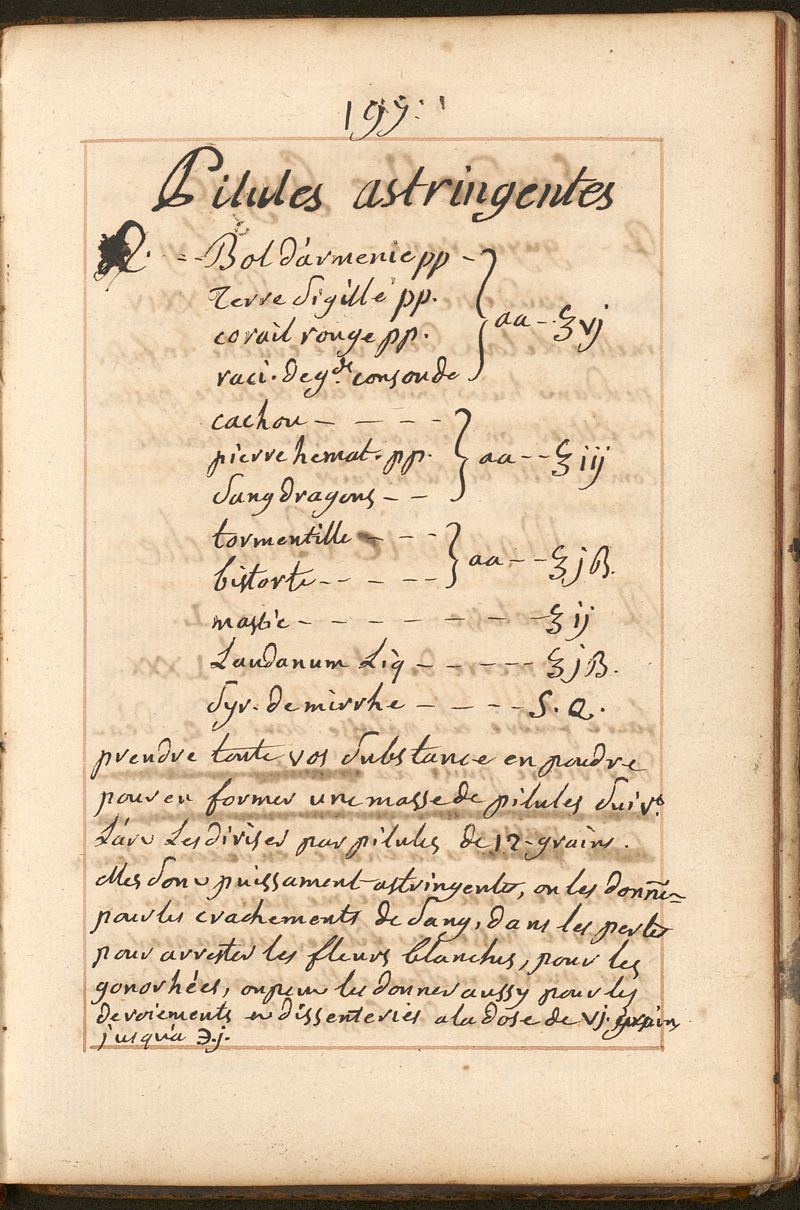 199.
Pilules astringentes
℞. -- Bol d'armenie pp -
Terre Sigillé pp.
corail rouge pp. } aa -- ʒ vj
raci. de gde consoude
cachou - - - -
pierre hemat. pp. } aa -- ʒ iij
Sang dragons - -
tormentille - - -
bistorte - - - - } aa -- ʒ j ß.
mastic - - - - - - - ʒ ij
Laudanum Liq - - - - - ʒ j ß.
Syr. de mirrhe - - - - S. Q.
prendre toute vos Substance en poudre
pour en former une masse de pilules Suivt.
L'are Les diviser par pilules de 12 grains.
elles Sont puissament astringentes, on les donne=
pour les crachements de Sang, dans les pertes
pour arrester les fleurs blanches, pour les
gonorhées, on peut les donner aussy pour les
devoiements et dissenteries a la dose de vj. grains
jusqu'a ℈.j.